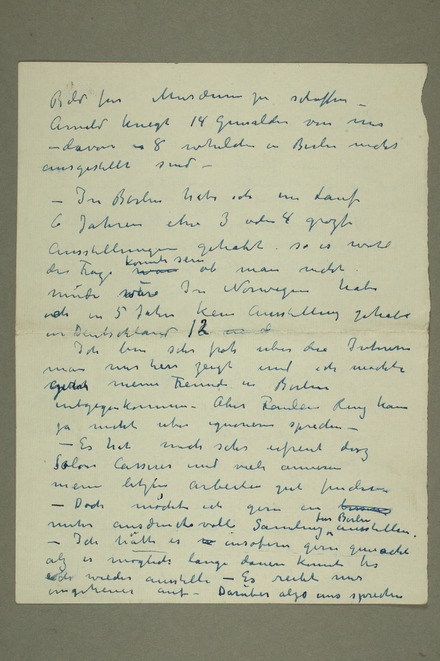 Bild fürs Museum zu schaffen –
Arnold kriegt 14 Gemälden von mir
– davon 8 in Berlin nicht
ausgestellt sind –
– In Berlin habe ich im Lauf
6 Jahren etwa 3 oder 4 große
Ausstellungen gehabt. so es
die Frage konnte sein ob man nicht
müde wäre In Norwegen habe
ich in 5 Jahre kein Ausstellung gehabt
in Deutschland 12
Ich bin sehr froh über das Interesse
man mir hier zeigt und ich möchte
meine Freunde in Berlin
entgegenkommen – Aber Fräulein Ring kann
ja nicht über sprechen –
– Es hat mich sehr erfreut dasz
Cassirer und viele anderen
meine letzten arbeiten gut finden
– Doch möchte ich gern en
ausdrucksvolle Sammlung für Berlin ausstellen.
– Ich hätte es insofern gern gemacht
alz es möglich lange dauern konnte bis
ich wieder ausstelle – Es mir
ungeheuer auf – Darüber alzo uns sprechen